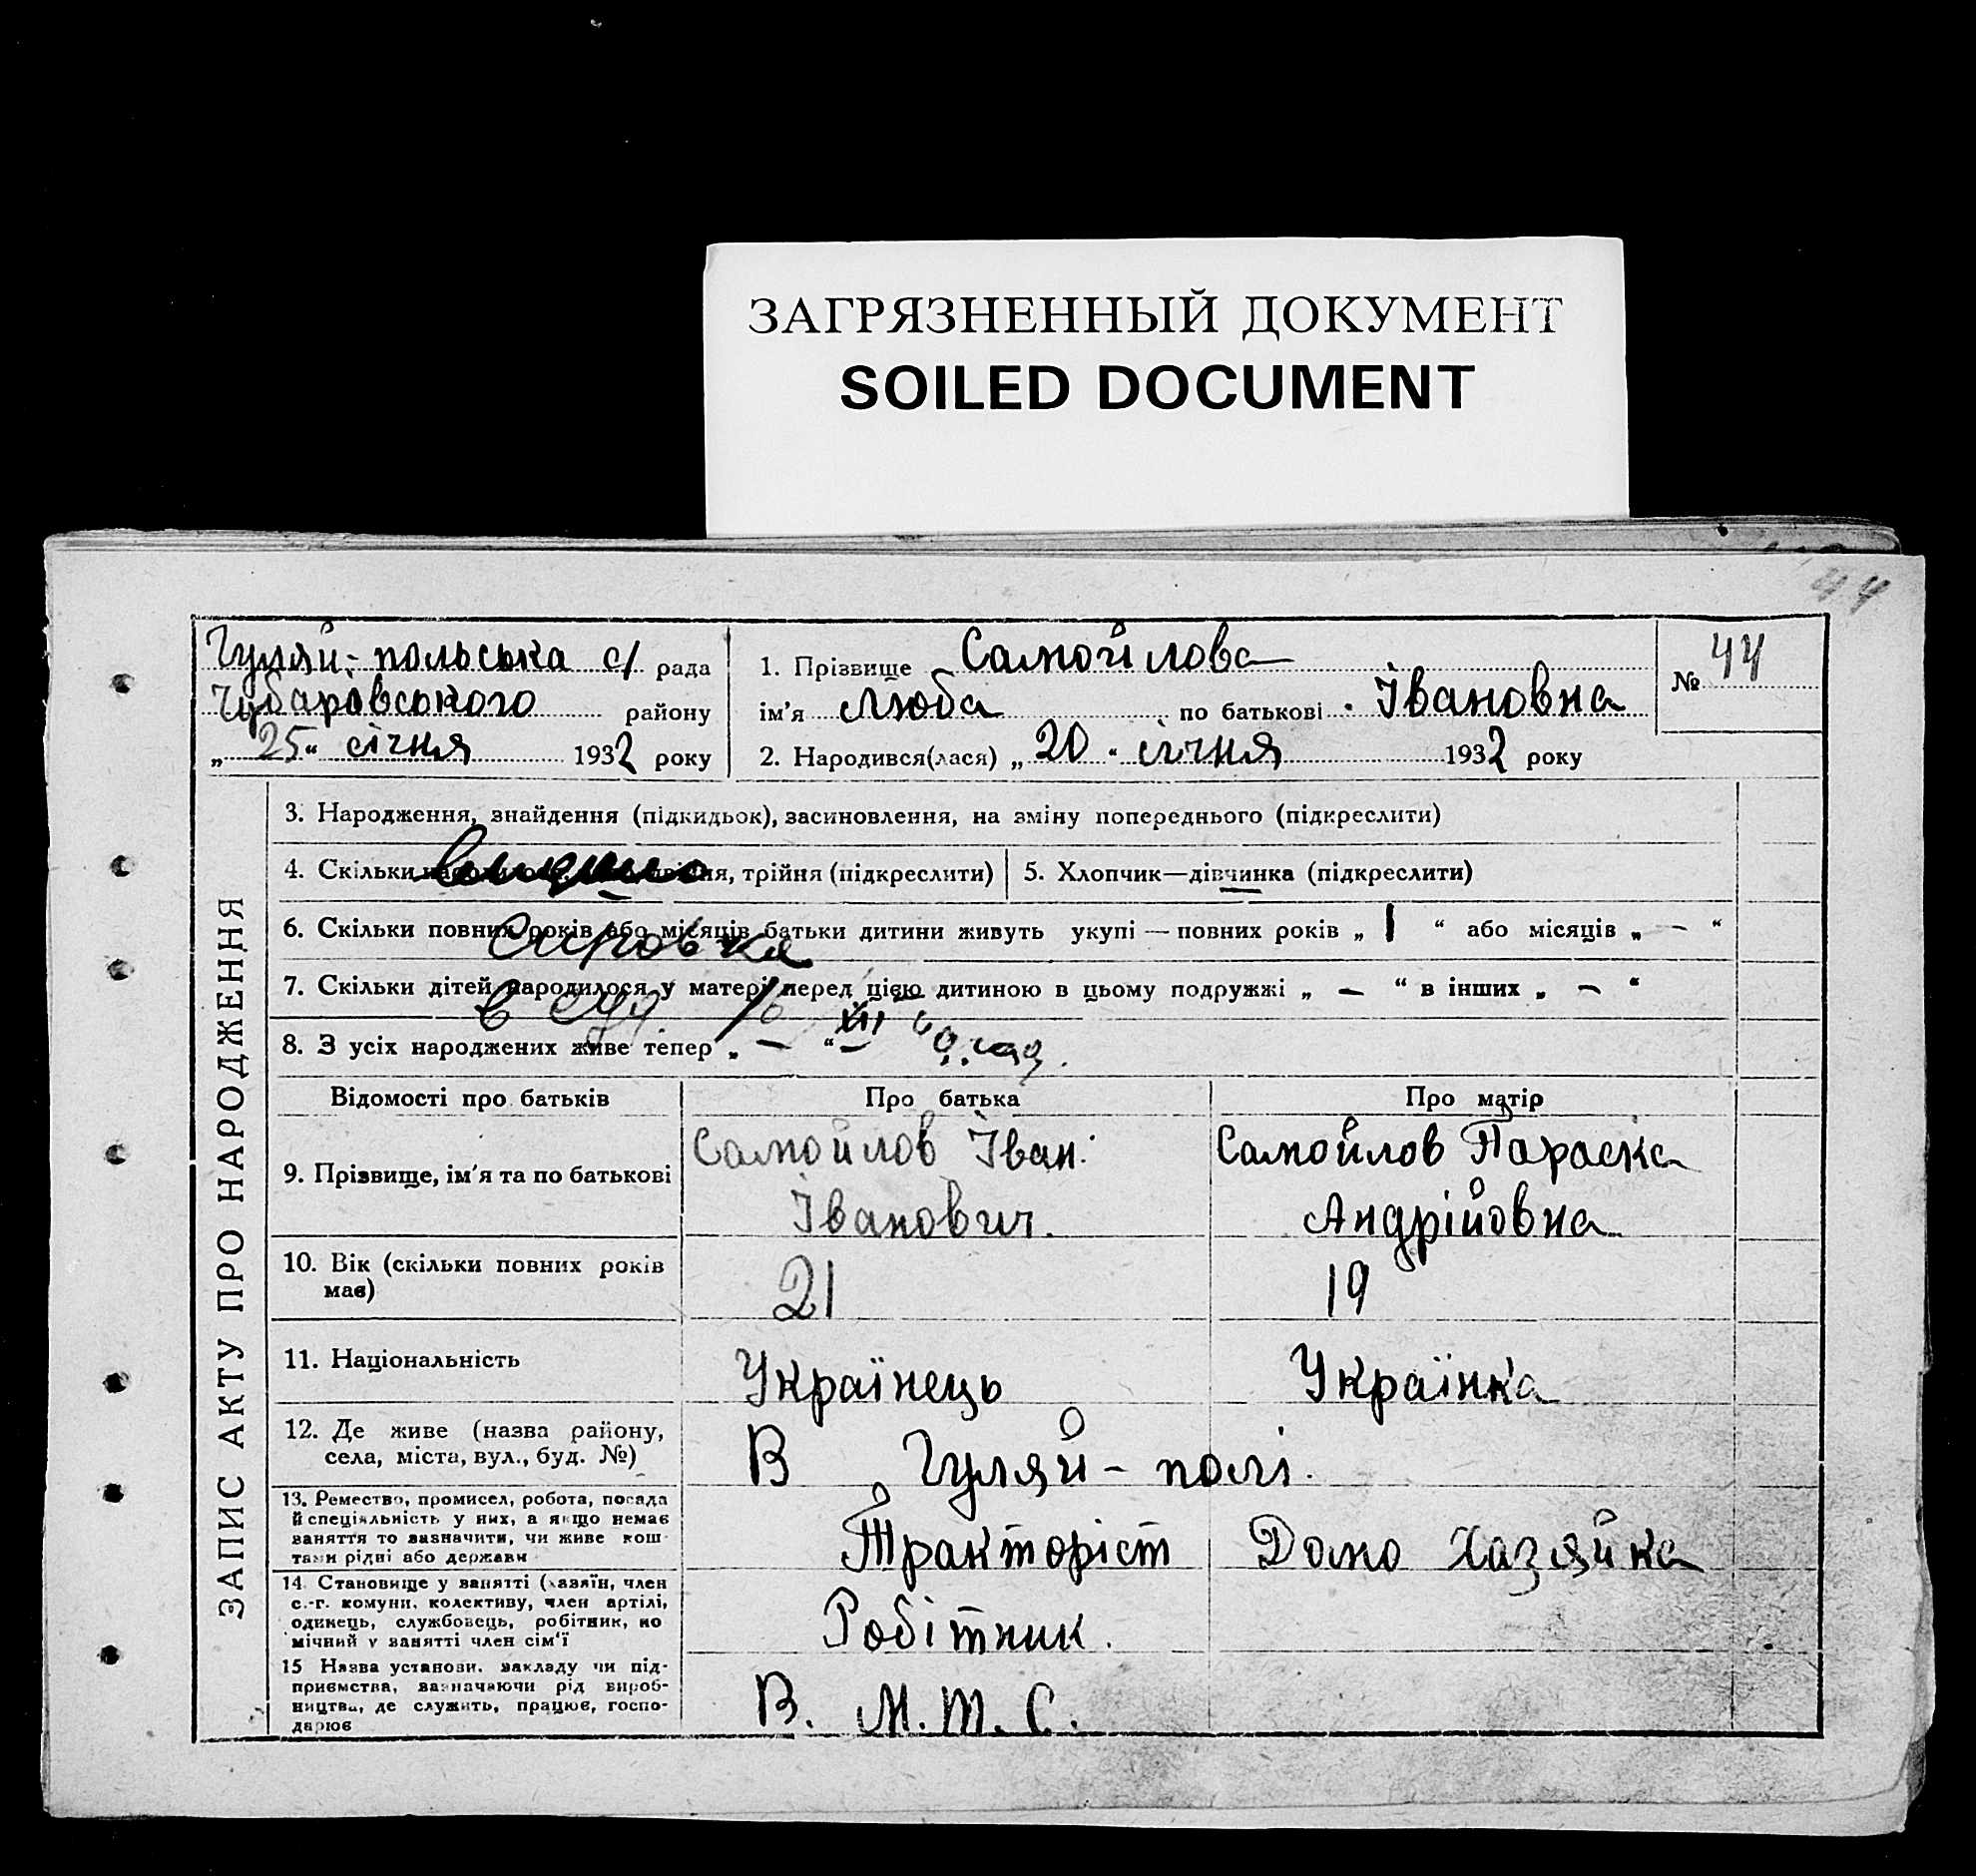 ЗАГРЯЗНЕННЫЙ ДОКУМЕНТ
SOILED DOCUMENT
44
Гуляй-польська с/ рада
Чубарівського району
„ 25 “ січня 1932 року
1. Прізвище Самойлова
ім'я Люба по батькові Івановна
2. Народився(лася) „ 20 “ січня 1932 року
№ 44
ЗАПИС АКТУ ПРО НАРОДЖЕННЯ
3. Народження, знайдення (підкидьок), засиновлення, на зміну попереднього (підкреслити)
4. Скільки трійня (підкреслити)
5. Хлопчик—дівчинка (підкреслити)
6. Скільки повних років або місяців батьки дитини живуть укупі — повних років „ 1 “ або місяців „ – “
7. Скільки дітей народилося у матері перед цією дитиною в цьому подружжі „ – “ в інших „ – “
8. З усіх народжених живе тепер „ – “
Відомості про батьків
Про батька
Про матір
9. Прізвище, ім'я та по батькові
Самойлов Іван
Іванович.
Самойлов Параска
Андрійовна
10. Вік (скільки повних років
має)
21
19
11. Національність
Українець
Українка
12. Де живе (назва району,
села, міста, вул., буд. №)
В Гуляй-полі.
13. Ремество, промисел, робота, посада
й спеціяльність у них, а якщо немає
заняття то зазначити, чи живе кош-
тами рідні або держави
Тракторіст
Домо Хазяйка
14. Становище у занятті (хазяїн, член
с.-г. комуни, колективу, член артілі,
одинець, службовець, робітник, по
мічний у занятті член сім'ї
Робітник.
15 Назва установи, закладу чи під-
приємства, зазначаючи рід вироб-
ництва, де служить, працює, госпо-
дарює
В. М. Т. С.